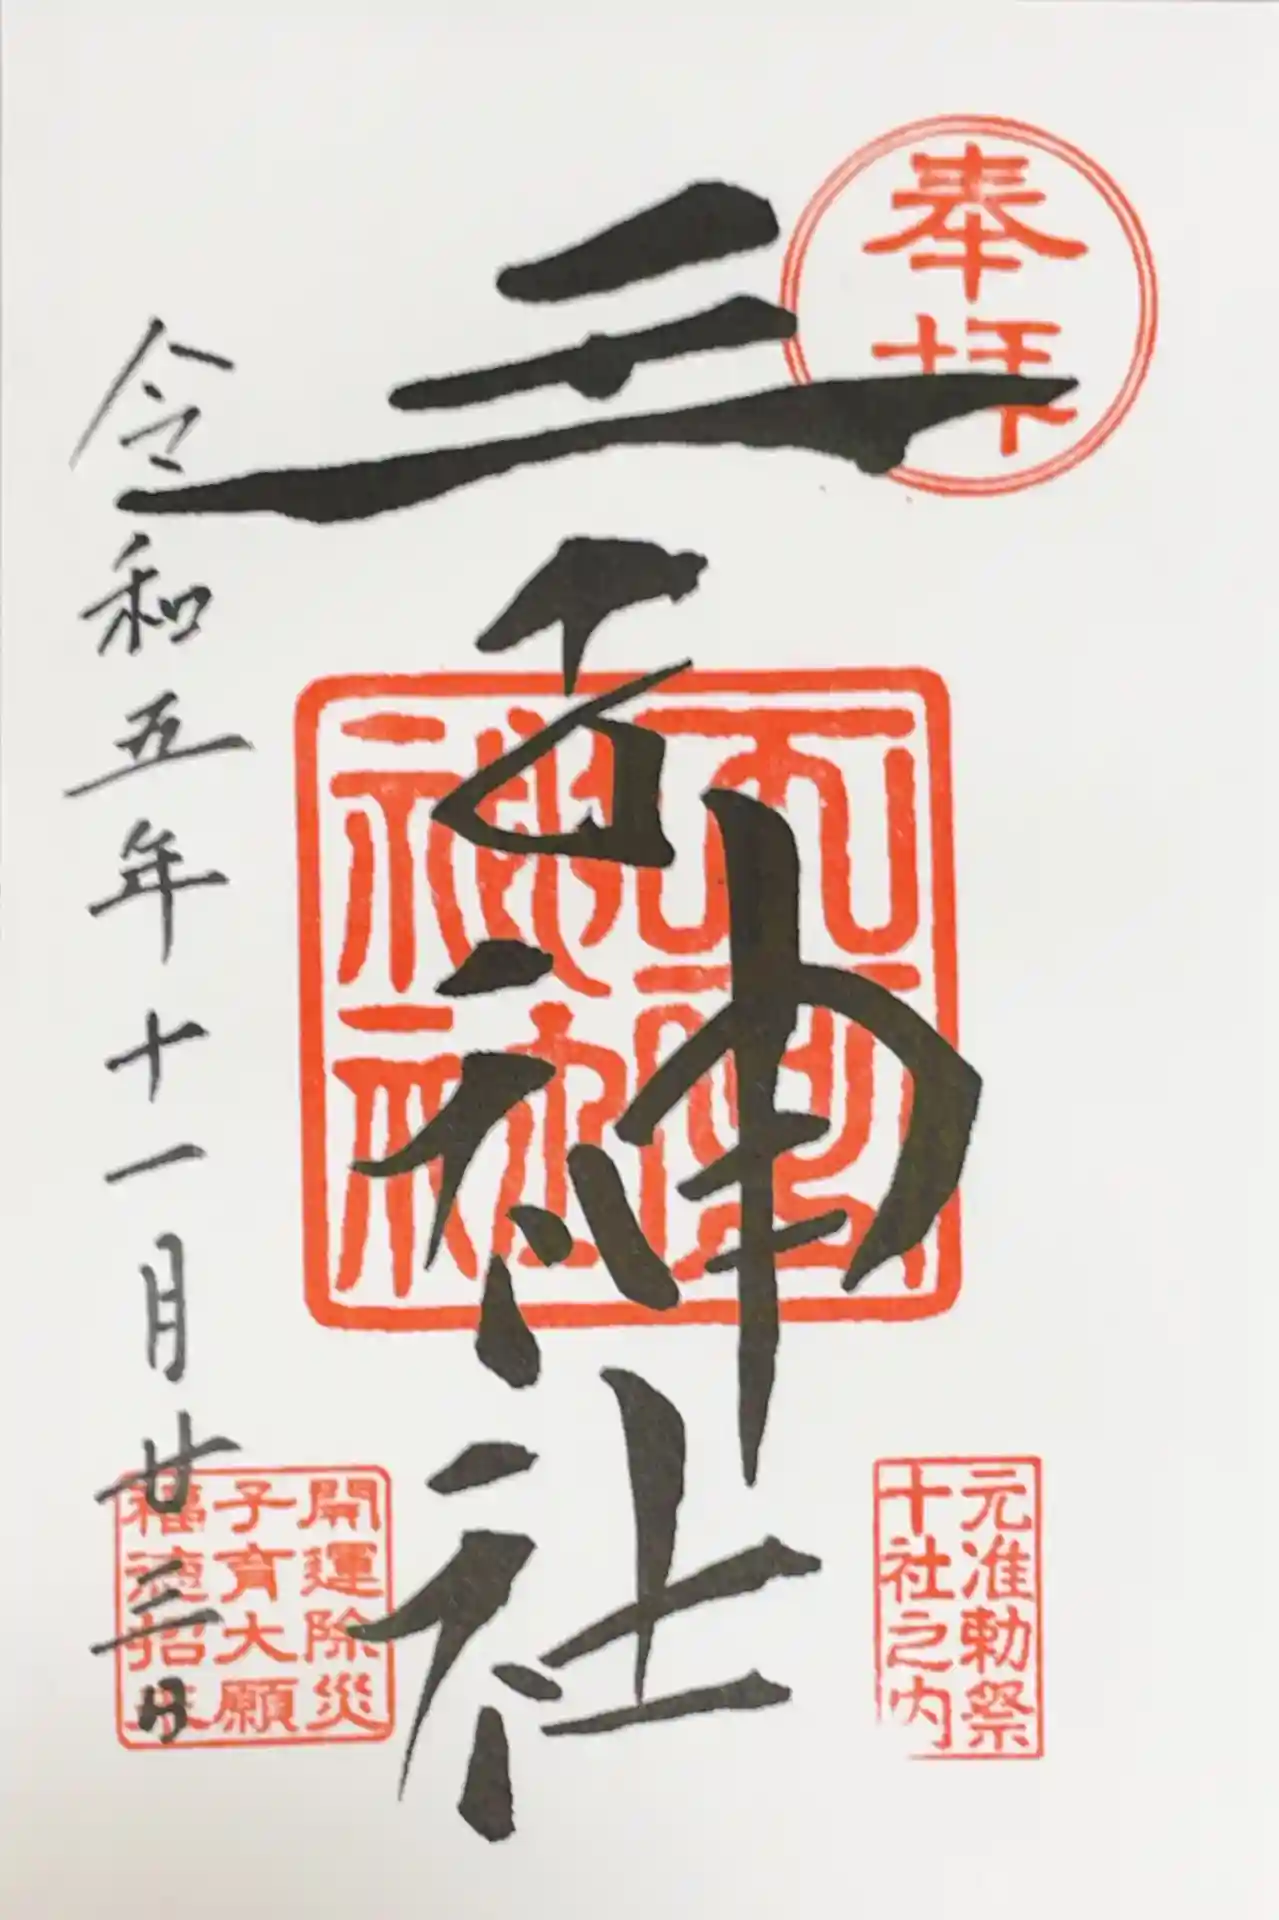 奉拝
三
神社
神社
元准勅祭
十社之内
開運除災
子育大願
福徳招来
令和五年十一月廿三日